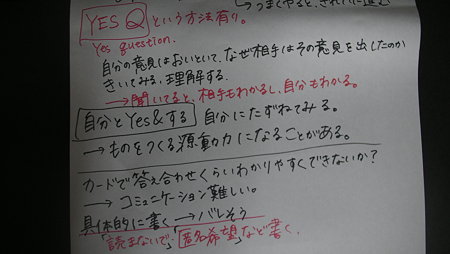 →つまくやると、きれいに進む
YES Q という方法有り。
Yes question.
自分の意見はおいといて、なぜ相手はその意見を出したのか
きいてみる、理解する。
→聞いてると、相手もわかるし、自分もわかる。
自分とYes&する 自分にたずねてみる。
→ものをつくる源動力になることがある。
カードで答え合わせくらいわかりやすくできないか?
→コミュニケーション難しい。
具体的に書く→バレそう
「読まないで」「匿名希望」など書く。